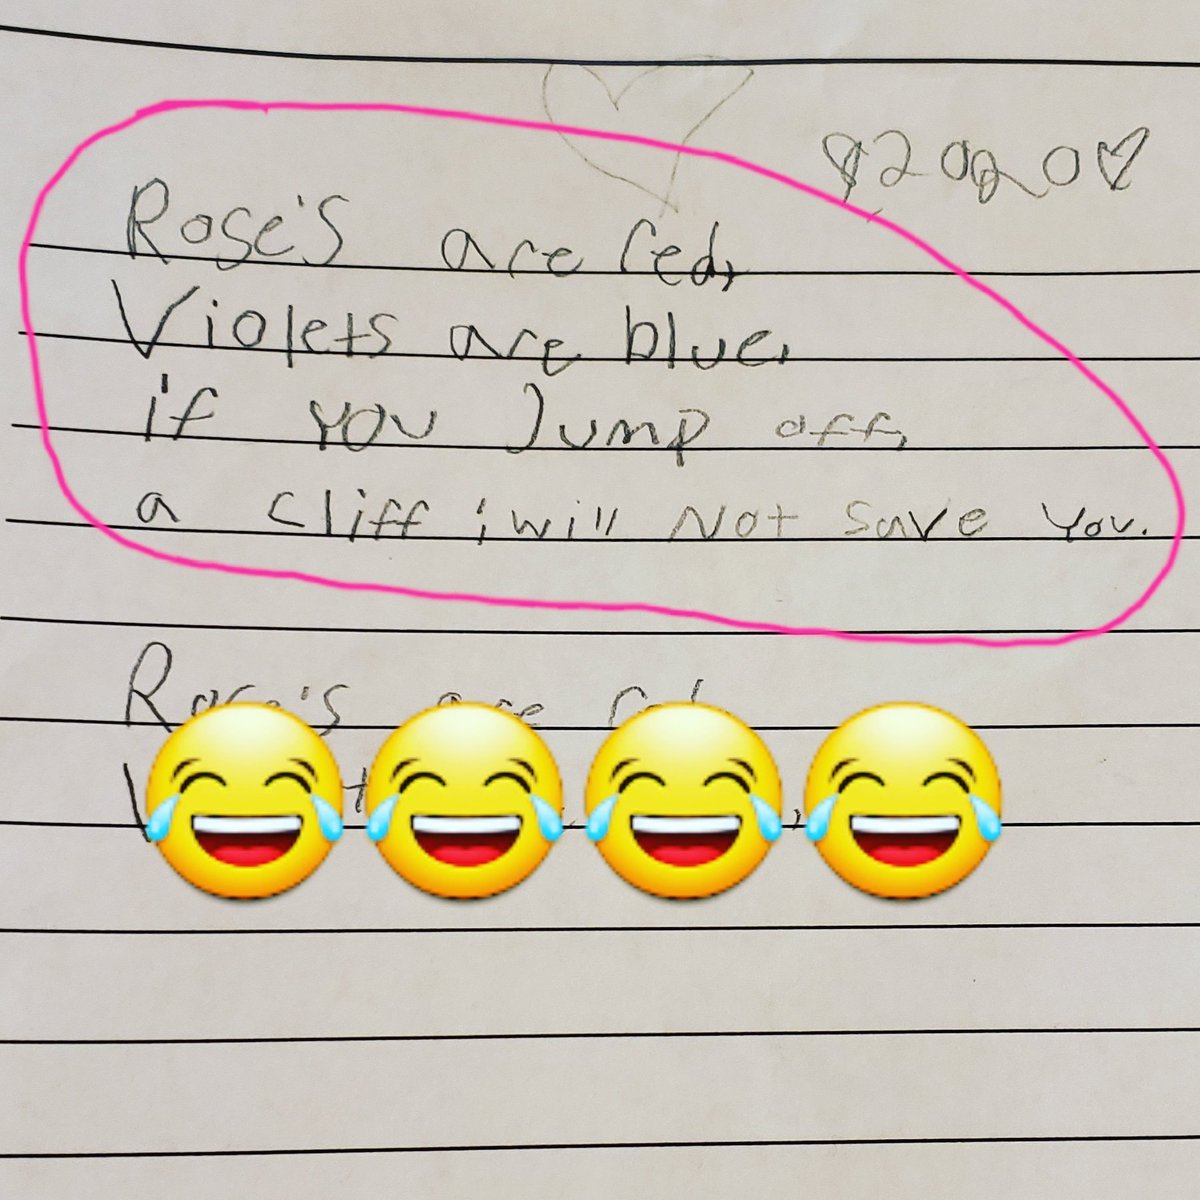 Rose's are red,
Violets are blue,
if you Jump off,
a cliff i will Not save you.
Rose's are red